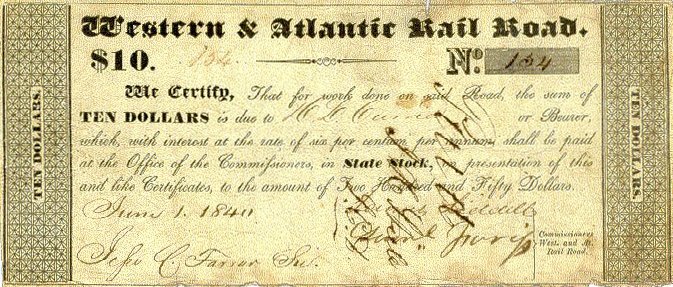 Western & Atlantic Rail Road.
$10. 134
No. 134
We Certify, That for work done on said Road, the sum of
TEN DOLLARS is due to or Bearer,
which, with interest at the rate of six per centum per annum, shall be paid
at the Office of the Commissioners, in State Stock, on presentation of this
and like Certificates, to the amount of Two Hundred and Fifty Dollars.
June 1. 1840
Commissioners
West. and At.
Rail Road.
Jeff C. Farrar Sec.
TEN DOLLARS.
TEN DOLLARS.